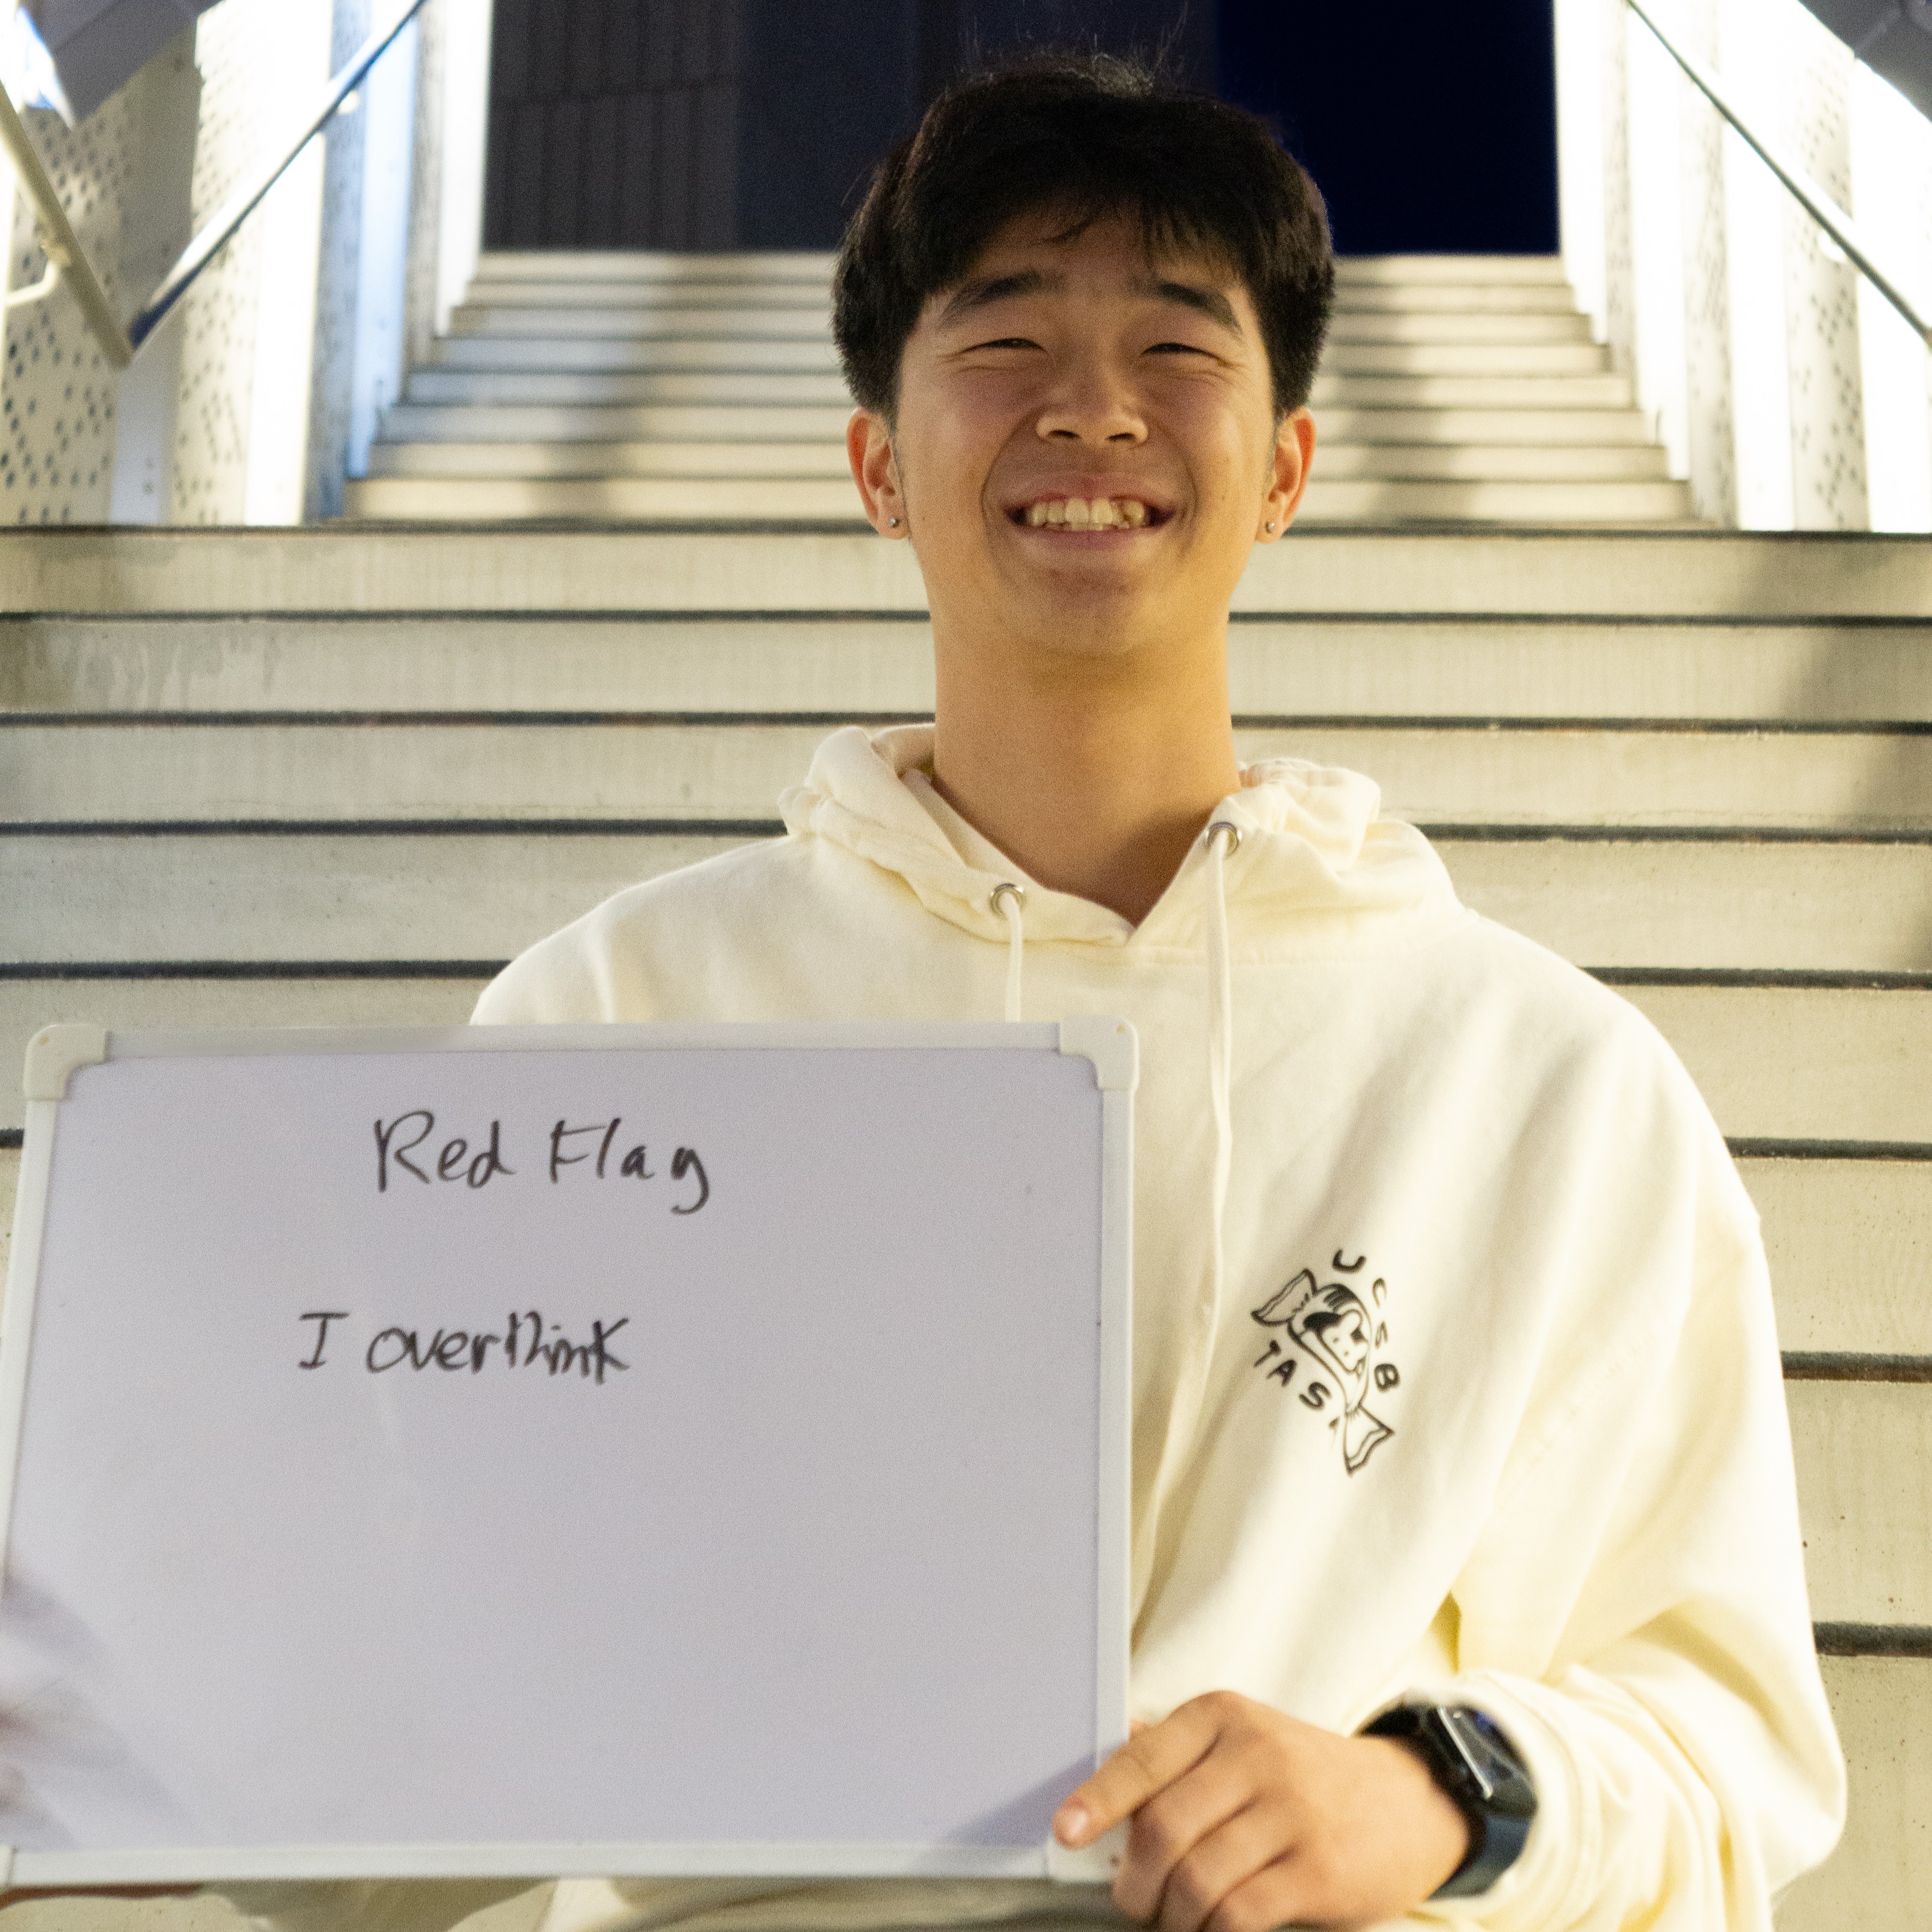 Red Flag
I overthink
UCSB
TASA